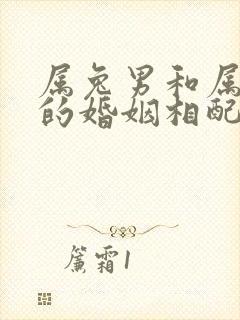 属兔男和属
的婚姻相配
篱霜1